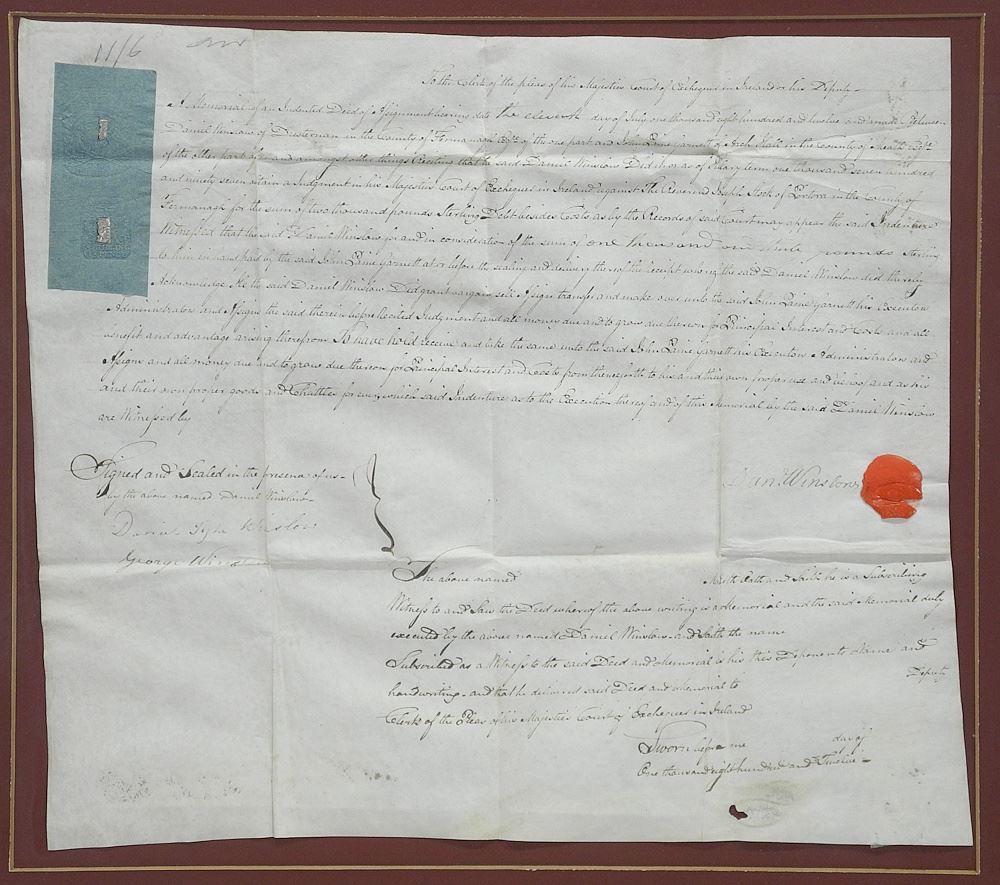 11/6
To the Clerk of the pleas of his Majesties Court of Exchequer in Ireland or his Deputy
A Memorial of an Indented Deed of Assignment bearing date the eleventh day of July one thousand eight hundred and twelve and made Between
Daniel Winslow of Dresternan in the County of Fermanagh Esqr. of the one part and John Paine Garnett of Arch Hall in the County of Meath Esqr.
of the other part after and amongst other things Reciting that the said Daniel Winslow Did in or as of Hilary term one thousand seven hundred
and ninety seven obtain a Judgment in his Majesties Court of Exchequer in Ireland against The Reverend Joseph Stock of Portora in the County of
Fermanagh for the sum of two thousand pounds Sterling Debt besides Costs as by the Records of said Court may appear the said Indenture
Witnessed that the said Daniel Winslow for and in consideration of the sum of one thousand pounds Sterling
to him in hand paid by the said John Paine Garnett at or before the sealing and delivery thereof the receipt whereof the said Daniel Winslow did thereby
Acknowledge He the said Daniel Winslow Did grant bargain sell Assign transfer and make over unto the said John Paine Garnett his Executors
Administrators and Assigns the said therein before Recited Judgment and all money due and to grow due thereon for Principal Interest and Costs and all
benefit and advantage arising therefrom To have hold receive and take the same unto the said John Paine Garnett his Executors Administrators and
Assigns and all money due and to grow due thereon for Principal Interest and Costs from thenceforth to his and their own proper use and behoof and as his
and their own proper goods and Chattles for ever which said Indenture as to the Execution thereof and of this Memorial by the said Daniel Winslow
are Witnessed by
Signed and Sealed in the presence of us
by the above named Daniel Winslow
Dan. Winslow
Daniel Winslow
George Winslow
The above named Maketh Oath and Saith he is a Subscribing
Witness to and Saw the Deed whereof the above writing is a Memorial and the said Memorial duly
executed by the above named Daniel Winslow and Saith the name
Subscribed as a Witness to the said Deed and Memorial is his this Deponents Name and
handwriting and that he delivered said Deed and Memorial to Deputy
Clerk of the Pleas of his Majesties Court of Exchequer in Ireland
Sworn before me day of
One thousand eight hundred and Twelve